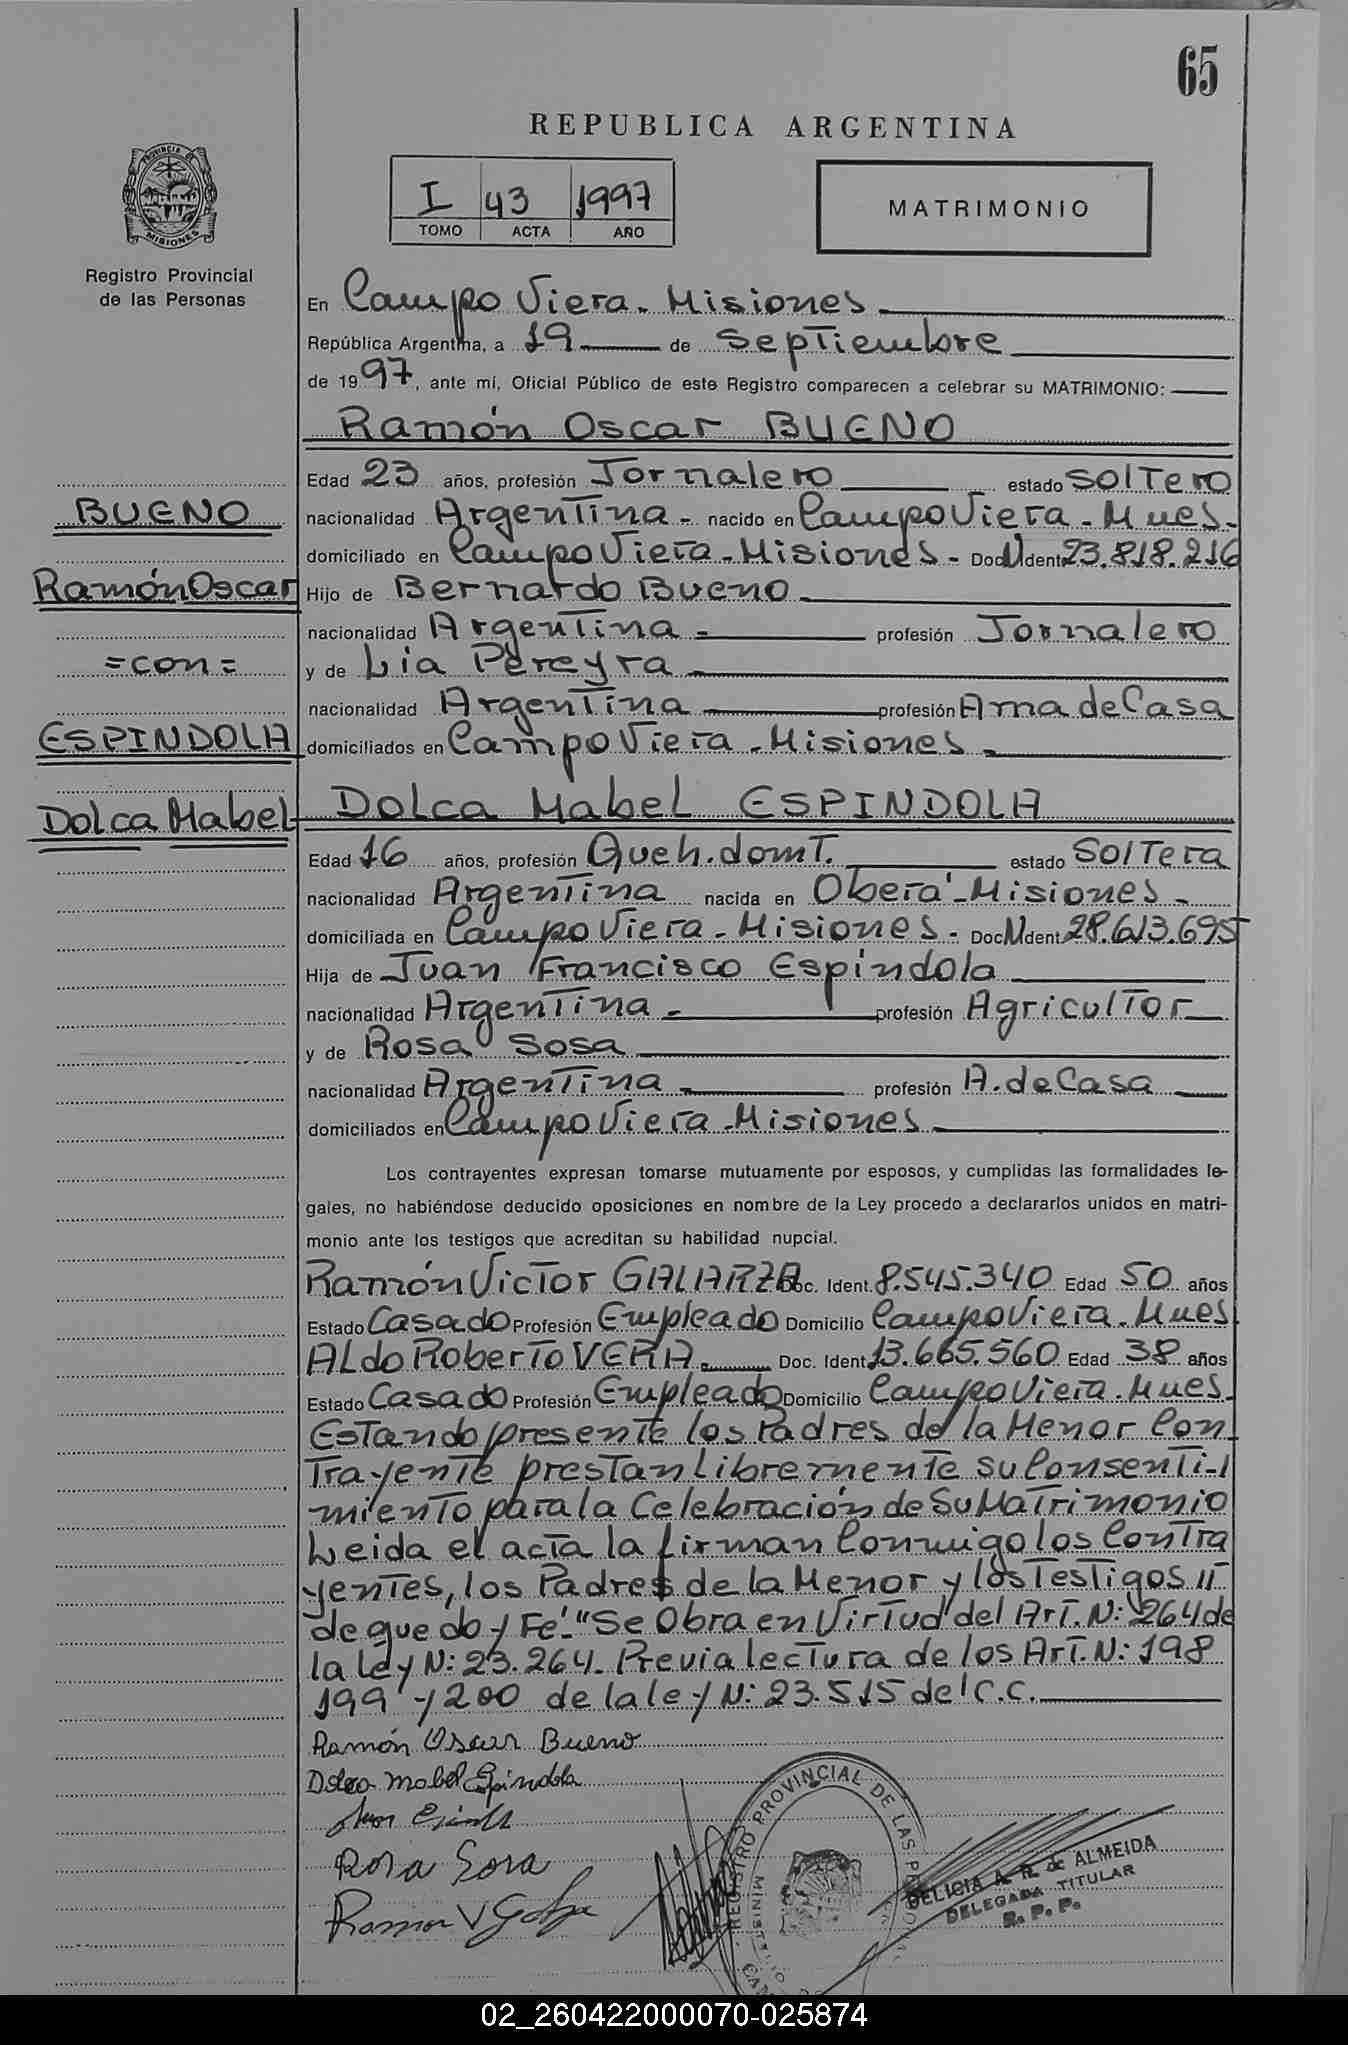 65
REPUBLICA ARGENTINA
PROVINCIA DE
MISIONES
I 43 1997
TOMO ACTA AÑO
MATRIMONIO
Registro Provincial
de las Personas
En Campo Viera. Misiones
República Argentina, a 19 de Septiembre
de 1997, ante mí, Oficial Público de este Registro comparecen a celebrar su MATRIMONIO:
Ramón Oscar BUENO
Edad 23 años, profesión Jornalero estado SolTero
BUENO
nacionalidad ArgenTina - nacido en Campo Viera - Mnes -
domiciliado en Campo Viera - Misiones - Doc N Ident 23.818.216
Ramón Oscar
Hijo de Bernardo Bueno
nacionalidad ArgenTina - profesión Jornalero
=con=
y de Lia Pereyra
nacionalidad ArgenTina profesión Ama de Casa
ESPINDOLA
domiciliados en Campo Viera - Misiones -
Dolca Mabel
Dolca Mabel ESPINDOLA
Edad 16 años, profesión Queh. domT. estado SolTera
nacionalidad ArgenTina nacida en Oberá - Misiones -
domiciliada en Campo Viera - Misiones - Doc N Ident 28.613.695
Hija de Juan Francisco Espíndola
nacionalidad ArgenTina - profesión AgriculTor
y de Rosa Sosa
nacionalidad ArgenTina - profesión A. de Casa
domiciliados en Campo Viera - Misiones
Los contrayentes expresan tomarse mutuamente por esposos, y cumplidas las formalidades le-
gales, no habiéndose deducido oposiciones en nombre de la Ley procedo a declararlos unidos en matri-
monio ante los testigos que acreditan su habilidad nupcial.
Ramón VicTor GALARZA Doc. Ident. 8.545.340 Edad 50 años
Estado Casado Profesión Empleado Domicilio Campo Viera. Mnes
ALdo RoberTo VERA. Doc. Ident 13.665.560 Edad 38 años
Estado Casado Profesión Empleado Domicilio Campo Viera. Mnes.
EsTando presenTe los Padres de la Menor Con
TrayenTe presTan Libremente su ConsenTi-
mienTo para la Celebración de Su MaTrimonio
Leida el acTa la firman Conmigo los ConTra
yenTes, los Padres de la Menor y los TesTigos
de que doy Fé. "Se Obra en VirTud del ArT. N: 264 de
la Ley N: 23.264. Previa lecTura de los ArT. N: 198
199 y 200 de la ley N: 23.515 del C.C.
Ramón Oscar Bueno
Dolca Mabel Espindola
Rosa Sosa
Ramon V
REGISTRO PROVINCIAL DE LAS
DELICIA A. R. de ALMEIDA
DELEGADA TITULAR
R. P. P.
02_260422000070-025874